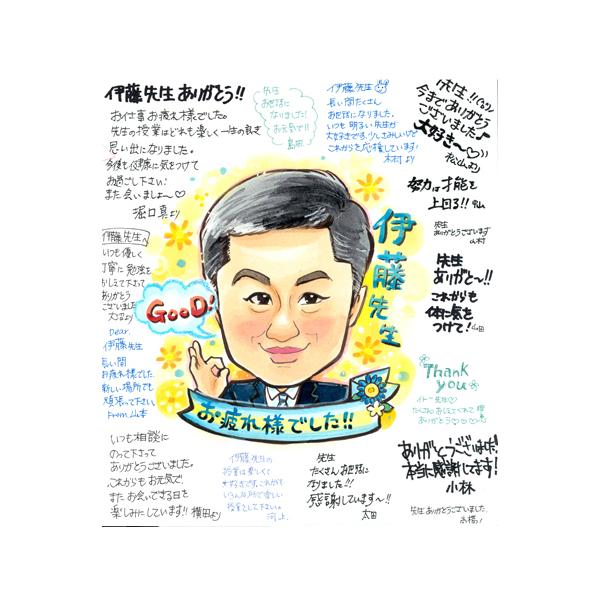 伊藤先生ありがとう!!
お仕事お疲れ様でした。
先生の授業はどれも楽しく一生の良き
思い出になりました。
今後も健康に気をつけて
お過ごし下さい!
また会いましょ〜♡
堀口真より
先生
お世話に
なりました!
お元気で!!
島田
伊藤先生
長い間たくさん
お世話になりました。
いつも明るい先生が
大好きです。少しさみしいけど
これからも応援しています!
木村より
先生!!
今まで ありがとう
ございました♪
大好き〜♡
松山より
努力は才能を
上回る!!
先生
ありがとうございます
山村
先生
ありがと〜!!
これからも
体に気を
つけて!
山田
伊藤先生へ
いつも優しく
丁寧に勉強を
おしえて下さって
ありがとう
ございました
大江より
Dear.
伊藤先生
長い間
お疲れ様でした
新しい場所でも
頑張って下さい
From 山本
GOOD!
伊藤先生
お疲れ様でした!!
Thank
you
イトー先生♡
たくさんおしえてくれて
ありがとう♡♡♡
いつも相談に
のって下さって
ありがとうございました。
これからもお元気で、
またお会いできる日を
楽しみにしています!! 横田より
伊藤先生の
授業は楽しくて
大好きです。これからも
いろんな所で楽しい
授業をして下さい。
河上.
先生
たくさんお世話に
なりました!!
感謝しています〜!!
太田
ありがとうございました!
本当に感謝してます!
小林
先生ありがとうございました.